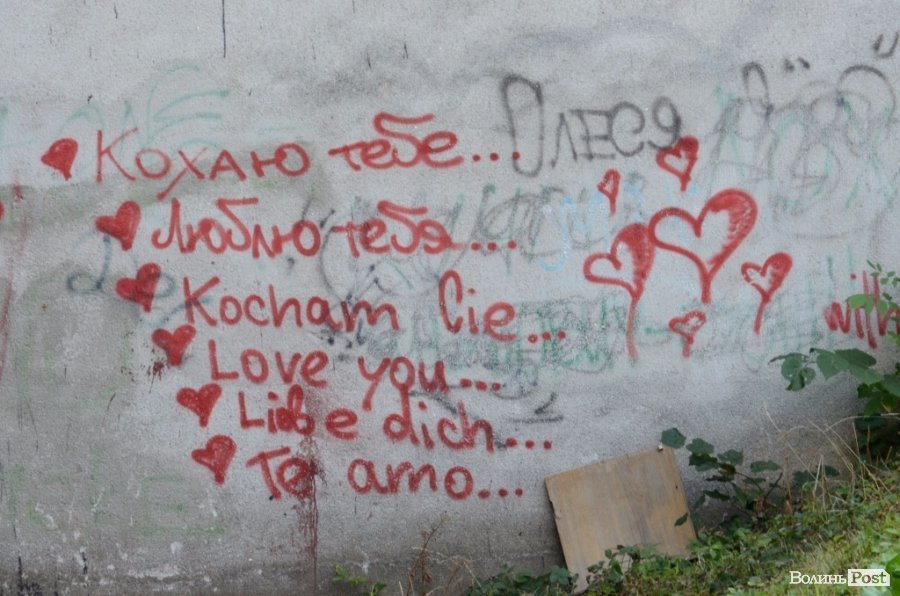 Кохаю тебе... Олеся
Люблю тебя...
Kocham Cie...
Love you...
Liebe dich...
Te amo...
ВолиньPost